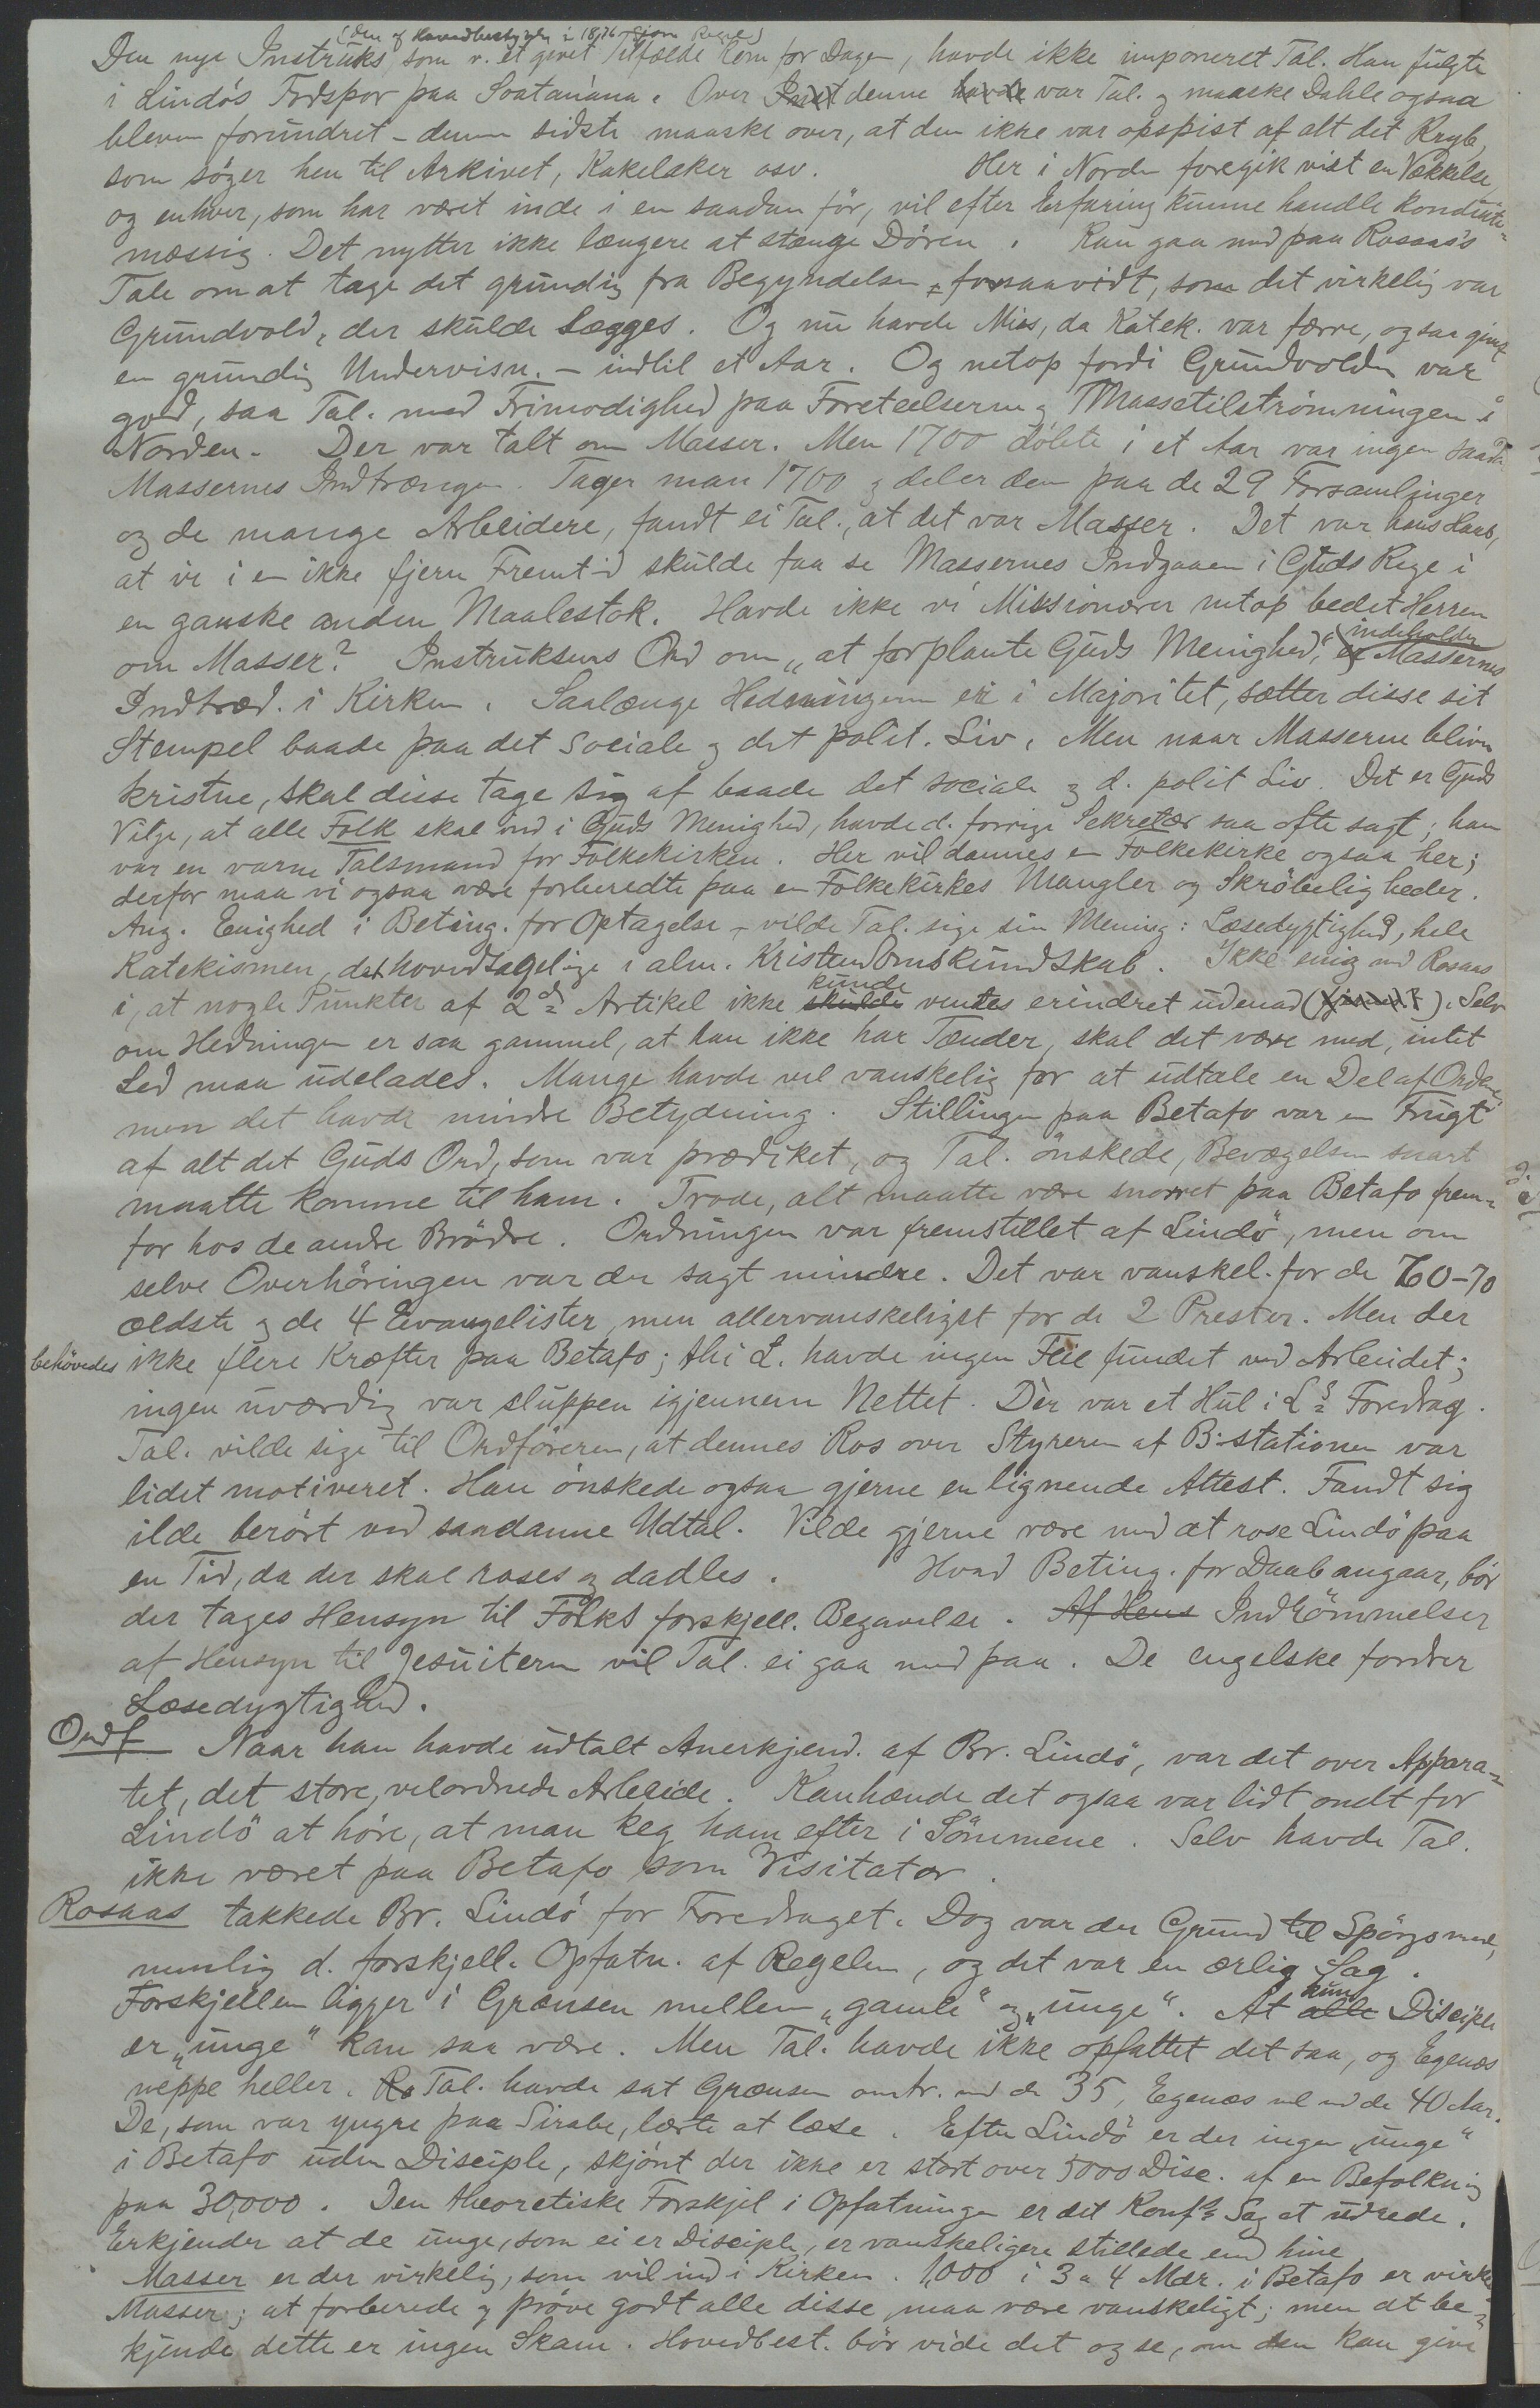 (den af Hovedbestyrelsen i 1876 
Den nye Instruks, som v. et givet Tilfælde kom for Dagen, havde ikke imponeret Tal. Han fulgte
i Lindö's Fodspor paa Soatanana. Over denne havde var Tal. og maaske Dahle ogsaa
bleven forundret – denne sidste maaske over, at den ikke var opspist af alt det Kryb,
som söger hen til Arkivet, Kakelaker osv. Her i Norden foregik vist en Vækkelse,
og enhver, som har været inde i en saadan för, vil efter Erfaring kunne handle konduite-
mæssig. Det nytter ikke længere at stænge Dören. Kan gaa med paa Rosaas's
Tale om at tage det grundig fra Begyndelsen forsaavidt, som det virkelig var
Grundvold, der skulde lægges. Og nu havde Miss, da Katek. var færre, ogsaa givet
en grundig Undervisn. – indtil et Aar. Og netop fordi Grundvolden var
god, saa Tal. med Frimodighed paa Foreteelserne og Massetilströmningen i
Norden. Der var talt om Masser. Men 1700 döbte i et Aar var ingen saadan
Massernes Indtrængen. Tager man 1700 og deler dem paa de 29 Forsamlinger
og de mange Arbeidere, fandt ei Tal., at det var Masser. Det var hans Haab,
at vi i en ikke fjern Fremtid skulde faa se Massernes Indgaaen i Guds Rige i
en ganske anden Maalestok. Havde ikke vi Missionærer netop bedet Herren
om Masser? Instruksens Ord om „at forplante Guds Menighed," indeholder Massernes
Indtræd. i Kirken. Saalænge Hedningerne er i Majoritet, sætter disse sit
Stempel baade paa det sociale og det polit. Liv. Men naar Masserne bliver
kristne, skal disse tage sig af baade det sociale og d. polit Liv. Det er Guds
Vilje, at alle Folk skal ind i Guds Menighed, havde d. forrige Sekretær saa ofte sagt; han
var en varm Talsmand for Folkekirken. Her vil dannes en Folkekirke ogsaa her;
derfor maa vi ogsaa være forberedte paa en Folkekirkes Mangler og Skröbeligheder.
Ang. Enighed i Beting. for Optagelse – vilde Tal. sige sin Mening: Læsedygtighed, hele
Katekismen, det hovedsagelige i alm. Kristendomskundskab. Ikke enig med Rosaas
i, at nogle Punkter af 2den Artikel ikke skulde kunde ventes erindret udenad. Selv
om Hedningen er saa gammel, at han ikke har Tænder, skal det være med, intet
Led maa udelades. Mange havde vel vanskelig for at udtale en Del af Ordene,
men det havde mindre Betydning. Stillingen paa Betafo var en Frugt
af alt det Guds Ord, som var prædiket, og Tal. önskede, Bevægelsen snart
maatte komme til ham. Trode, alt maatte være snorret paa Betafo frem-
for hos de andre Brödre. Ordningen var fremstillet af Lindö, men om
selve Overhöringen var der sagt mindre. Det var vanskel. for de 60-70
ældste og de 4 Evangelister, men allervanskeligst for de 2 Prester. Men der
behövedes ikke flere Kræfter paa Betafo; thi L. havde ingen Feil fundet ved Arbeidet;
ingen uværdig var sluppen igjennem Nettet. Dèr var et Hul i L's Foredrag.
Tal. vilde sige til Ordföreren, at dennes Ros over Styreren af B:stationen var
lidet motiveret. Han önskede ogsaa gjerne en lignende Attest. Fandt sig
ilde berört ved saadanne Udtal. Vilde gjerne være med at rose Lindö paa
en Tid, da der skal roses og dadles. Hvad Beting. for Daab angaar, bör
der tages Hensyn til Folks forskjell. Begavelse. Af Hens Indrömmelser
af Hensyn til Jesuiterne vil Tal. ei gaa med paa. De engelske fordrer
Læsedygtighed.
Ordf Naar han havde udtalt Anerkjend. af Br. Lindö, var det over Appara-
tet, det store, velordnede Arbeide. Kanhænde det ogsaa var lidt ondt for
Lindö at höre, at man keg ham efter i Sömmene. Selv havde Tal.
ikke været paa Betafo som Visitator.
Rosaas takkede Br. Lindö for Foredraget. Dog var der Grund til Spörgsmaal,
nemlig d. forskjell. Opfatn. af Regelen, og det var en ærlig Sag.
Forskjellen ligger i Grænsen mellem „gamle" og „unge". At alle kuns Disciple
er „unge" kan saa være. Men Tal. havde ikke opfattet det saa, og Egenæs
neppe heller. Ro Tal. havde sat Grænsen omtr. ved de 35, Egenæs vel ved de 40 Aar.
De, som var yngre paa Sirabe, lærte at læse. Efter Lindö er der ingen „unge"
i Betafo uden Disciple, skjönt der ikke er stort over 5000 Disc. af en Befolkning
paa 30,000. Den theoretiske Forskjel i Opfatningen er det Konf's Sag at udrede.
Erkjender at de unge, som ei er Disciple, er vanskeligere stillede end hine
Masser er der virkelig, som vil ind i Kirken. 1,000 i 3 a 4 Mdr. i Betafo er virkel
Masser; at forberede og pröve godt alle disse, maa være vanskeligt; men at be-
kjende dette er ingen Skam. Hovedbest. bör vide det og se, om den kan give